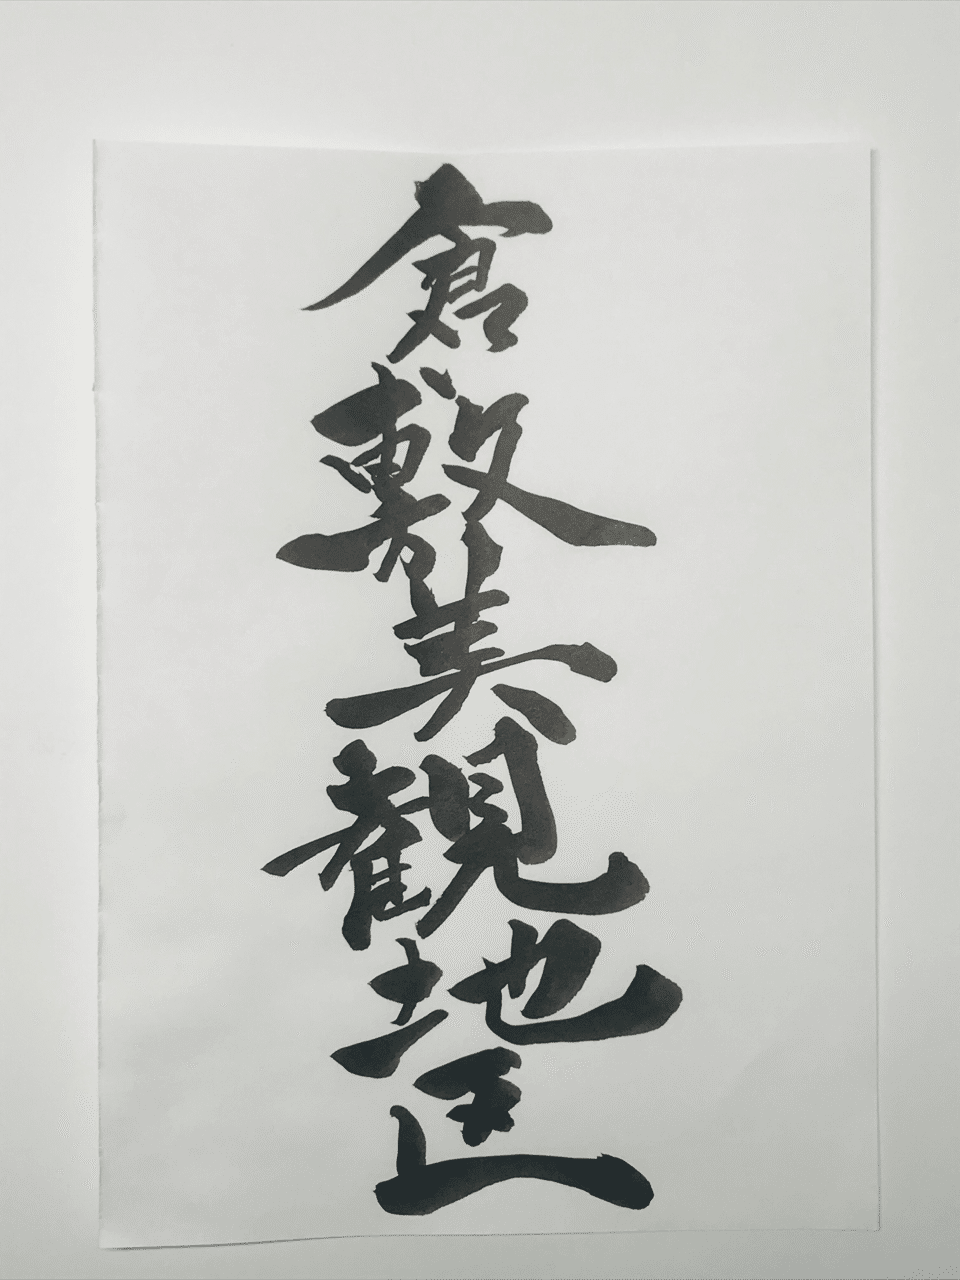 倉敷美観地区